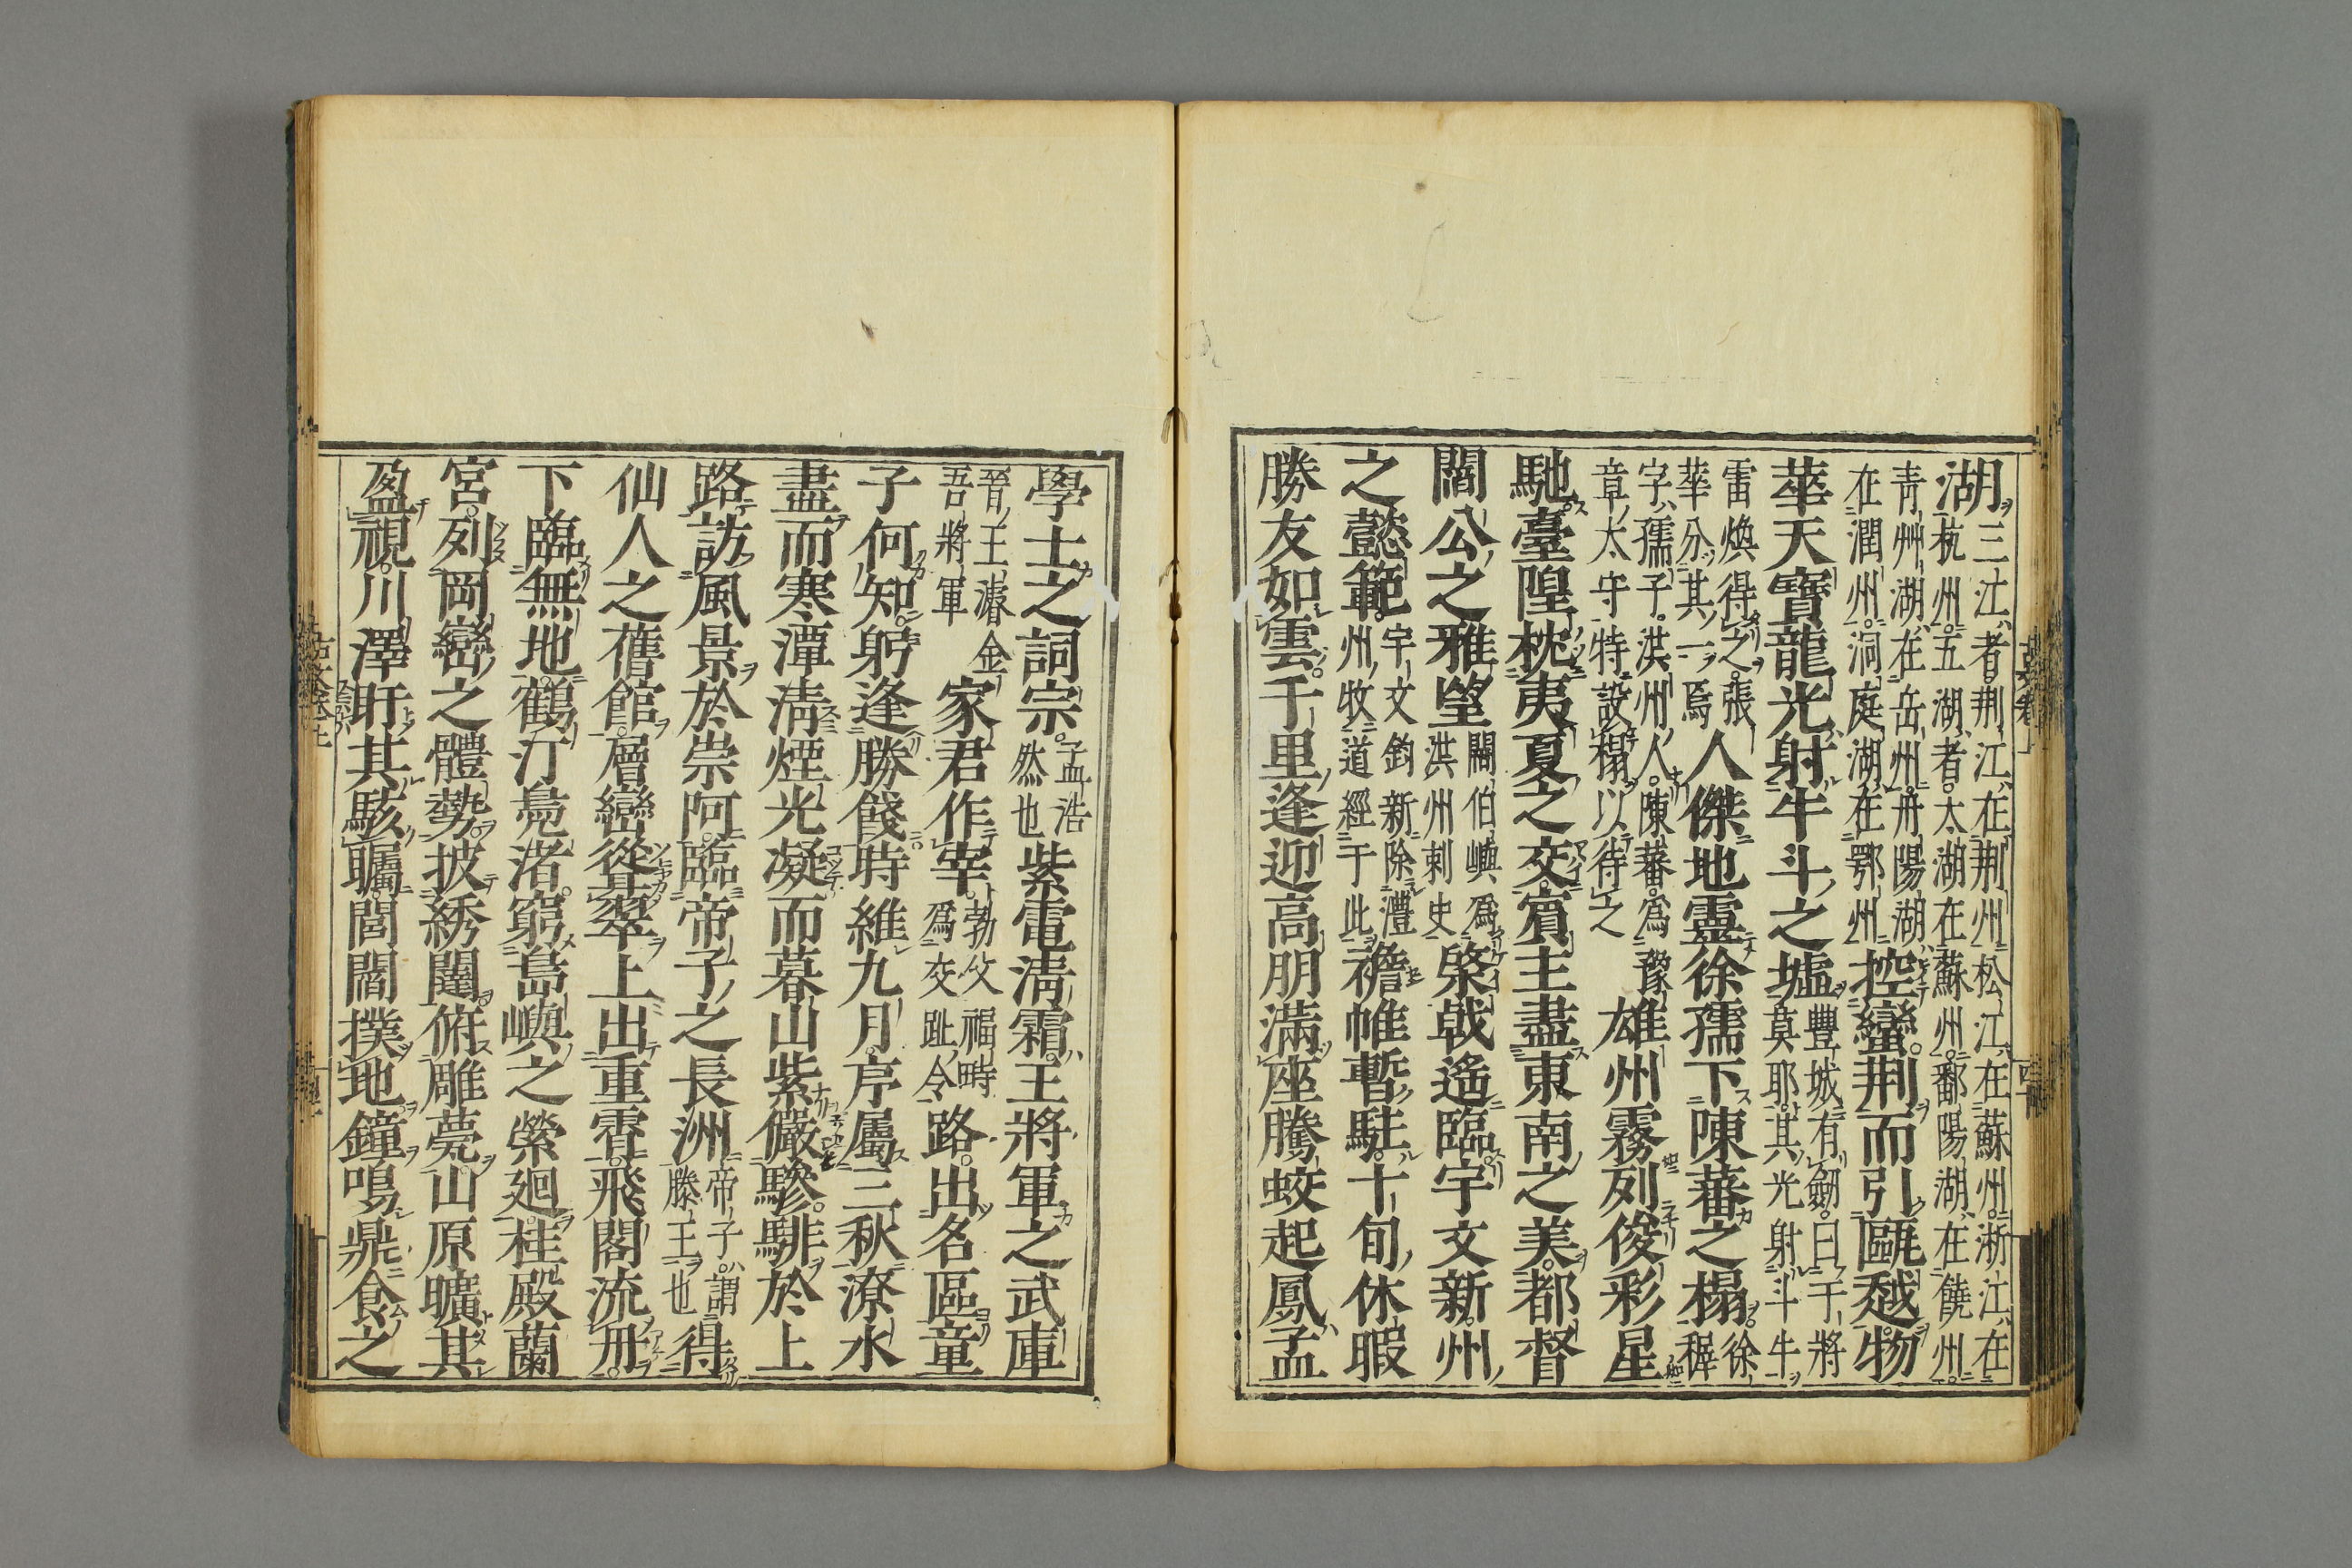 湖三江者荆江在荆州松江在蘇州浙江在
杭州五湖者太湖在蘇州鄱陽湖在饒州
青州湖在岳州丹陽湖
在潤州洞庭湖在鄂州控蠻荆而引甌越物
華天寶龍光射牛斗之墟豐城有劒曰干將
莫耶其光射斗牛
雷煥得之張
華分其一焉人傑地靈徐孺下陳蕃之榻徐穉
字孺子洪州人陳蕃爲豫
章太守特設榻以待之雄州霧列俊彩星
馳臺隍枕夷夏之交賓主盡東南之美都督
閻公之雅望閻伯嶼爲
洪州刺史棨戟遙臨宇文新州
之懿範宇文鈞新除澧
州牧道經于此襜帷暫駐十旬休暇
勝友如雲千里逢迎高朋滿座騰蛟起鳳孟
學士之詞宗孟浩
然也紫電淸霜王將軍之武庫
晉王濬金
吾將軍家君作宰勃父福畤
爲交趾令路出名區童
子何知躬逢勝餞時維九月序屬三秋潦水
盡而寒潭淸煙光凝而暮山紫儼驂騑於上
路訪風景於崇阿臨帝子之長洲帝子謂
滕王也得
仙人之舊館層巒聳翠上出重霄飛閣流丹
下臨無地鶴汀鳧渚窮島嶼之縈廻桂殿蘭
宮列岡巒之體勢披綉闥俯雕甍山原曠其
盈視川澤盱其駭矚閭閻撲地鐘鳴鼎食之